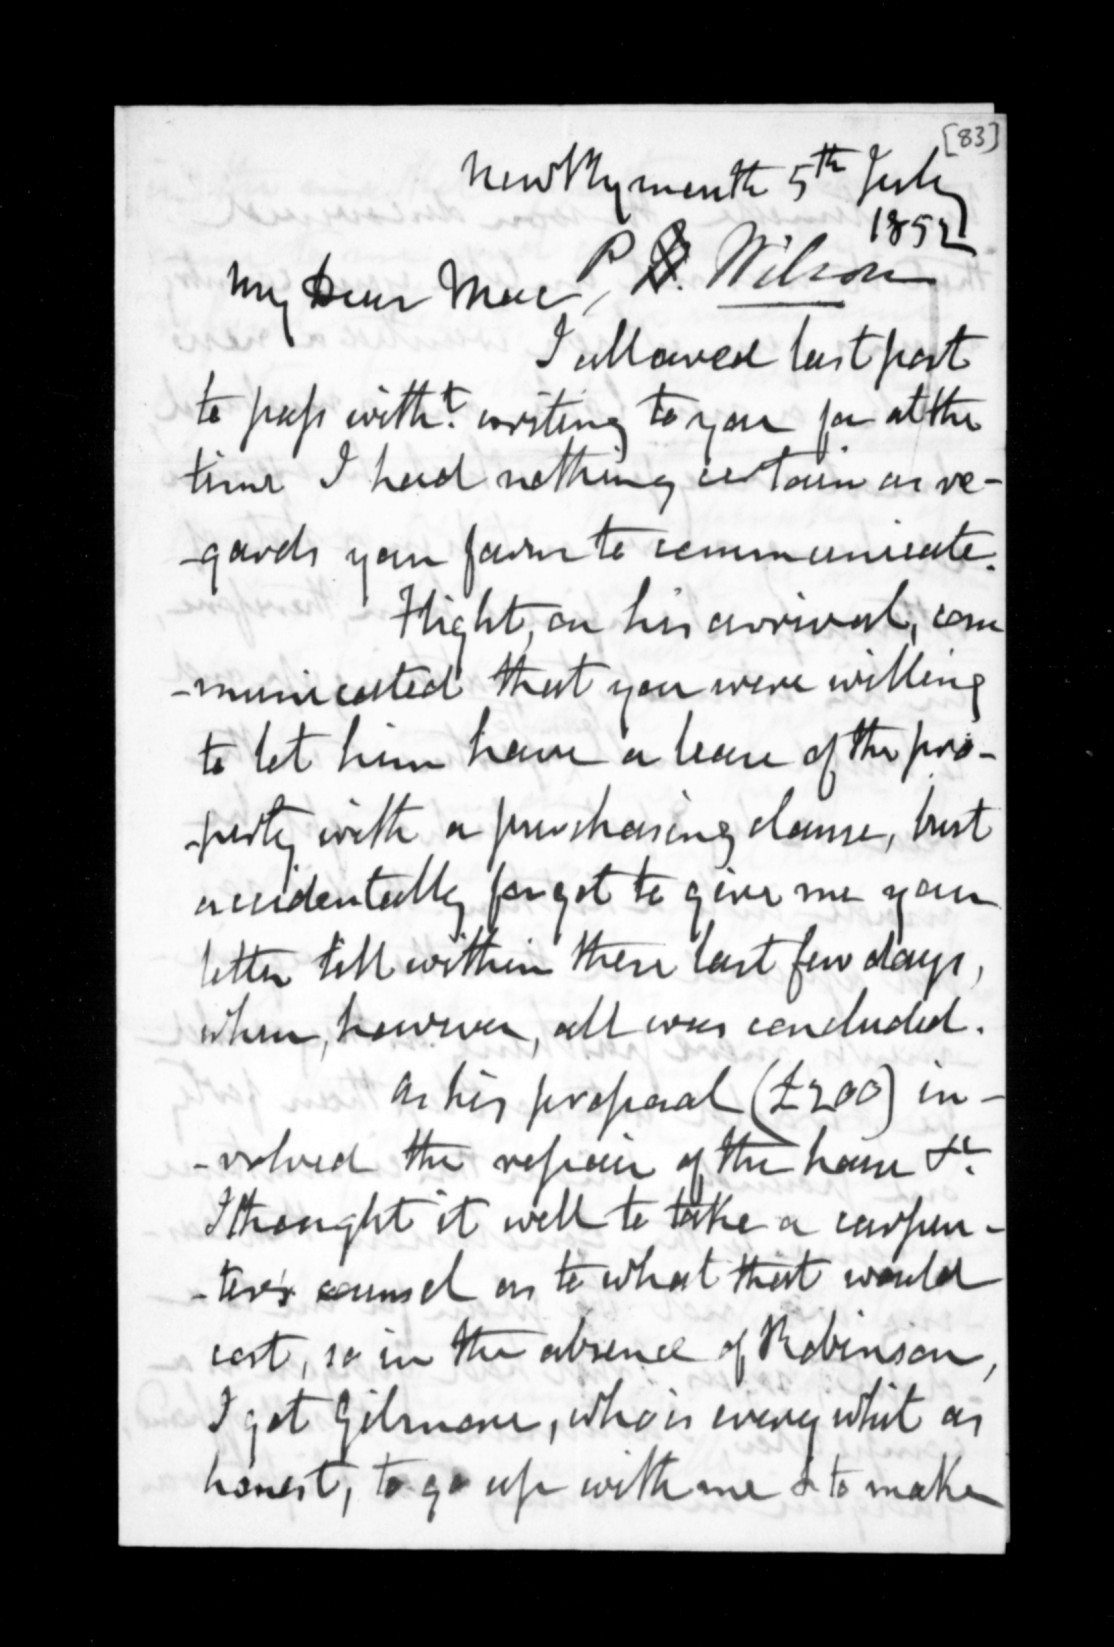 [83]
New Plymouth 5th July
1852
P. Wilson
My Dear Mac,
I allowed last post
to pass witht. writing to you for at the
time I had nothing certain as re-
-gards your farm to communicate.
Flight, on his arrival, com
-municated that you were willing
to let him have a lease of the pro-
-perty with a purchasing clause, but
accidentally forgot to give me your
letter till within these last few days,
when, however, all was concluded.
As his proposal (£200) in-
-volved the repair of the house &c.
I thought it well to take a carpen-
-ter's counsel as to what that would
cost, so in the absence of Robinson,
I got Gilmore, who is every whit as
honest, to go up with me & to make